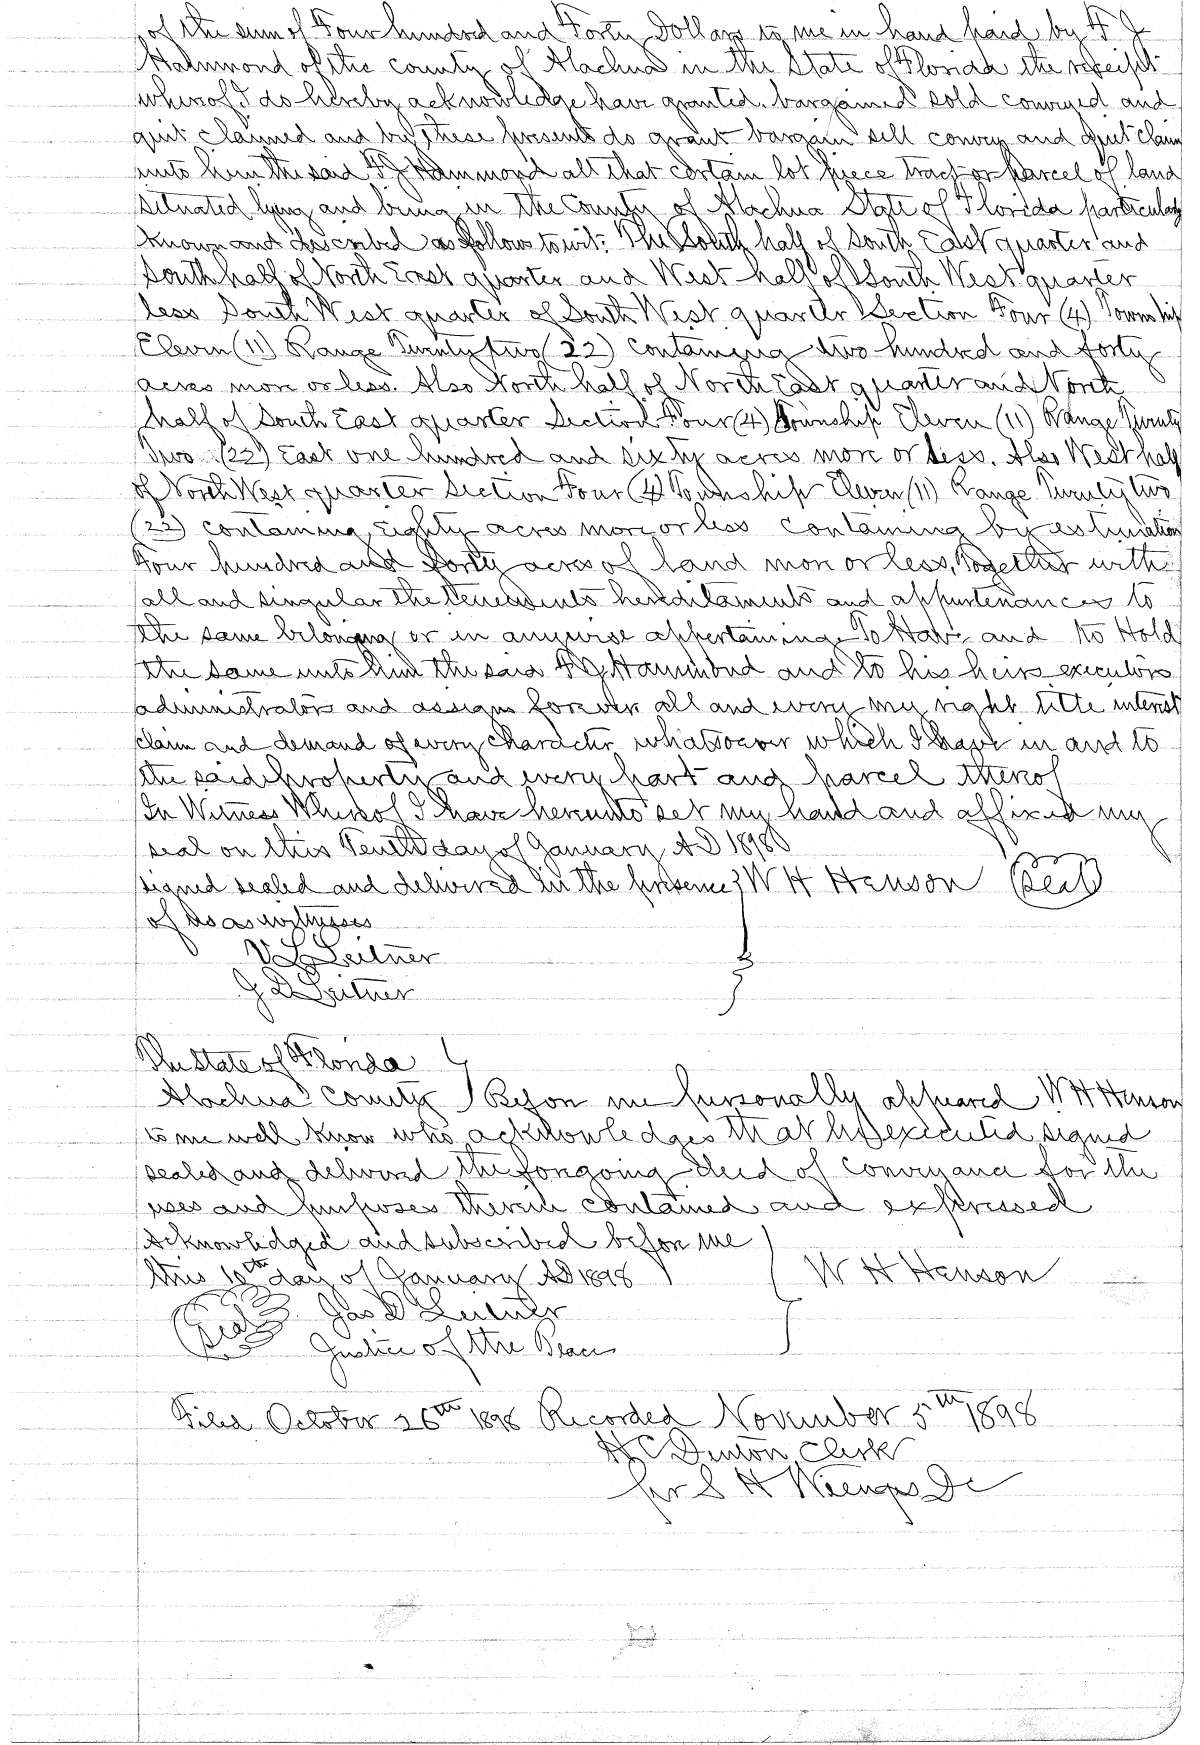 of the sum of Four hundred and Forty Dollars to me in hand paid by F J
Hammond of the county of Alachua in the State of Florida the receipt
wherof I do hereby acknowledge have granted. bargained sold conveyed and
quit claimed and by these presents do grant bargain sell convey and quit claim
unto him the said F J Hammond all that certain lot piece tract or parcel of land
situated lying and being in the County of Alachua State of Florida particularly
known and described as follows to wit: The South half of South East quarter and
South half of North East quarter and West half of South West quarter
less South West quarter of South West quarter Section Four (4) Township
Eleven (11) Range Twenty two (22) containing two hundred and forty
acres more or less. Also North half of North East quarter and North
half of South East quarter Section Four (4) Township Eleven (11) Range Twenty
Two (22) East one hundred and sixty acres more or less. Also West half
of North West quarter Section Four (4) Township Eleven (11) Range Twenty two
(22) containing Eighty acres more or less containing by estimation
Four hundred and forty acres of land more or less, Together with
all and singular the tenements hereditaments and appurtenances to
the same belonging or in anywise appertaining To Have and to Hold
the same unto him the said F J Hammond and to his heirs executors
administrators and assigns forever all and every my right title interest
claim and demand of every character whatsoever which I have in and to
the said property and every part and parcel thereof
In Witness Whereof I have hereunto set my hand and affixed my
seal on this Tenth day of January A D 1898
signed sealed and delivered in the presence W H Henson (Seal)
of us as witnesses
V L Leitner
J D Leitner
The State of Florida
Alachua County Before me personally appeared W H Henson
to me well know who acknowledges that he executed signed
sealed and delivered the foregoing deed of conveyance for the
uses and purposes therein contained and expressed
Acknowledged and subscribed before me
this 10th day of January AD 1898 W H Henson
(Seal) Jas D Leitner
Justice of the Peace
Filed October 26th 1898 Recorded November 5th 1898
H C Denton Clerk
per S H Wienges Dc